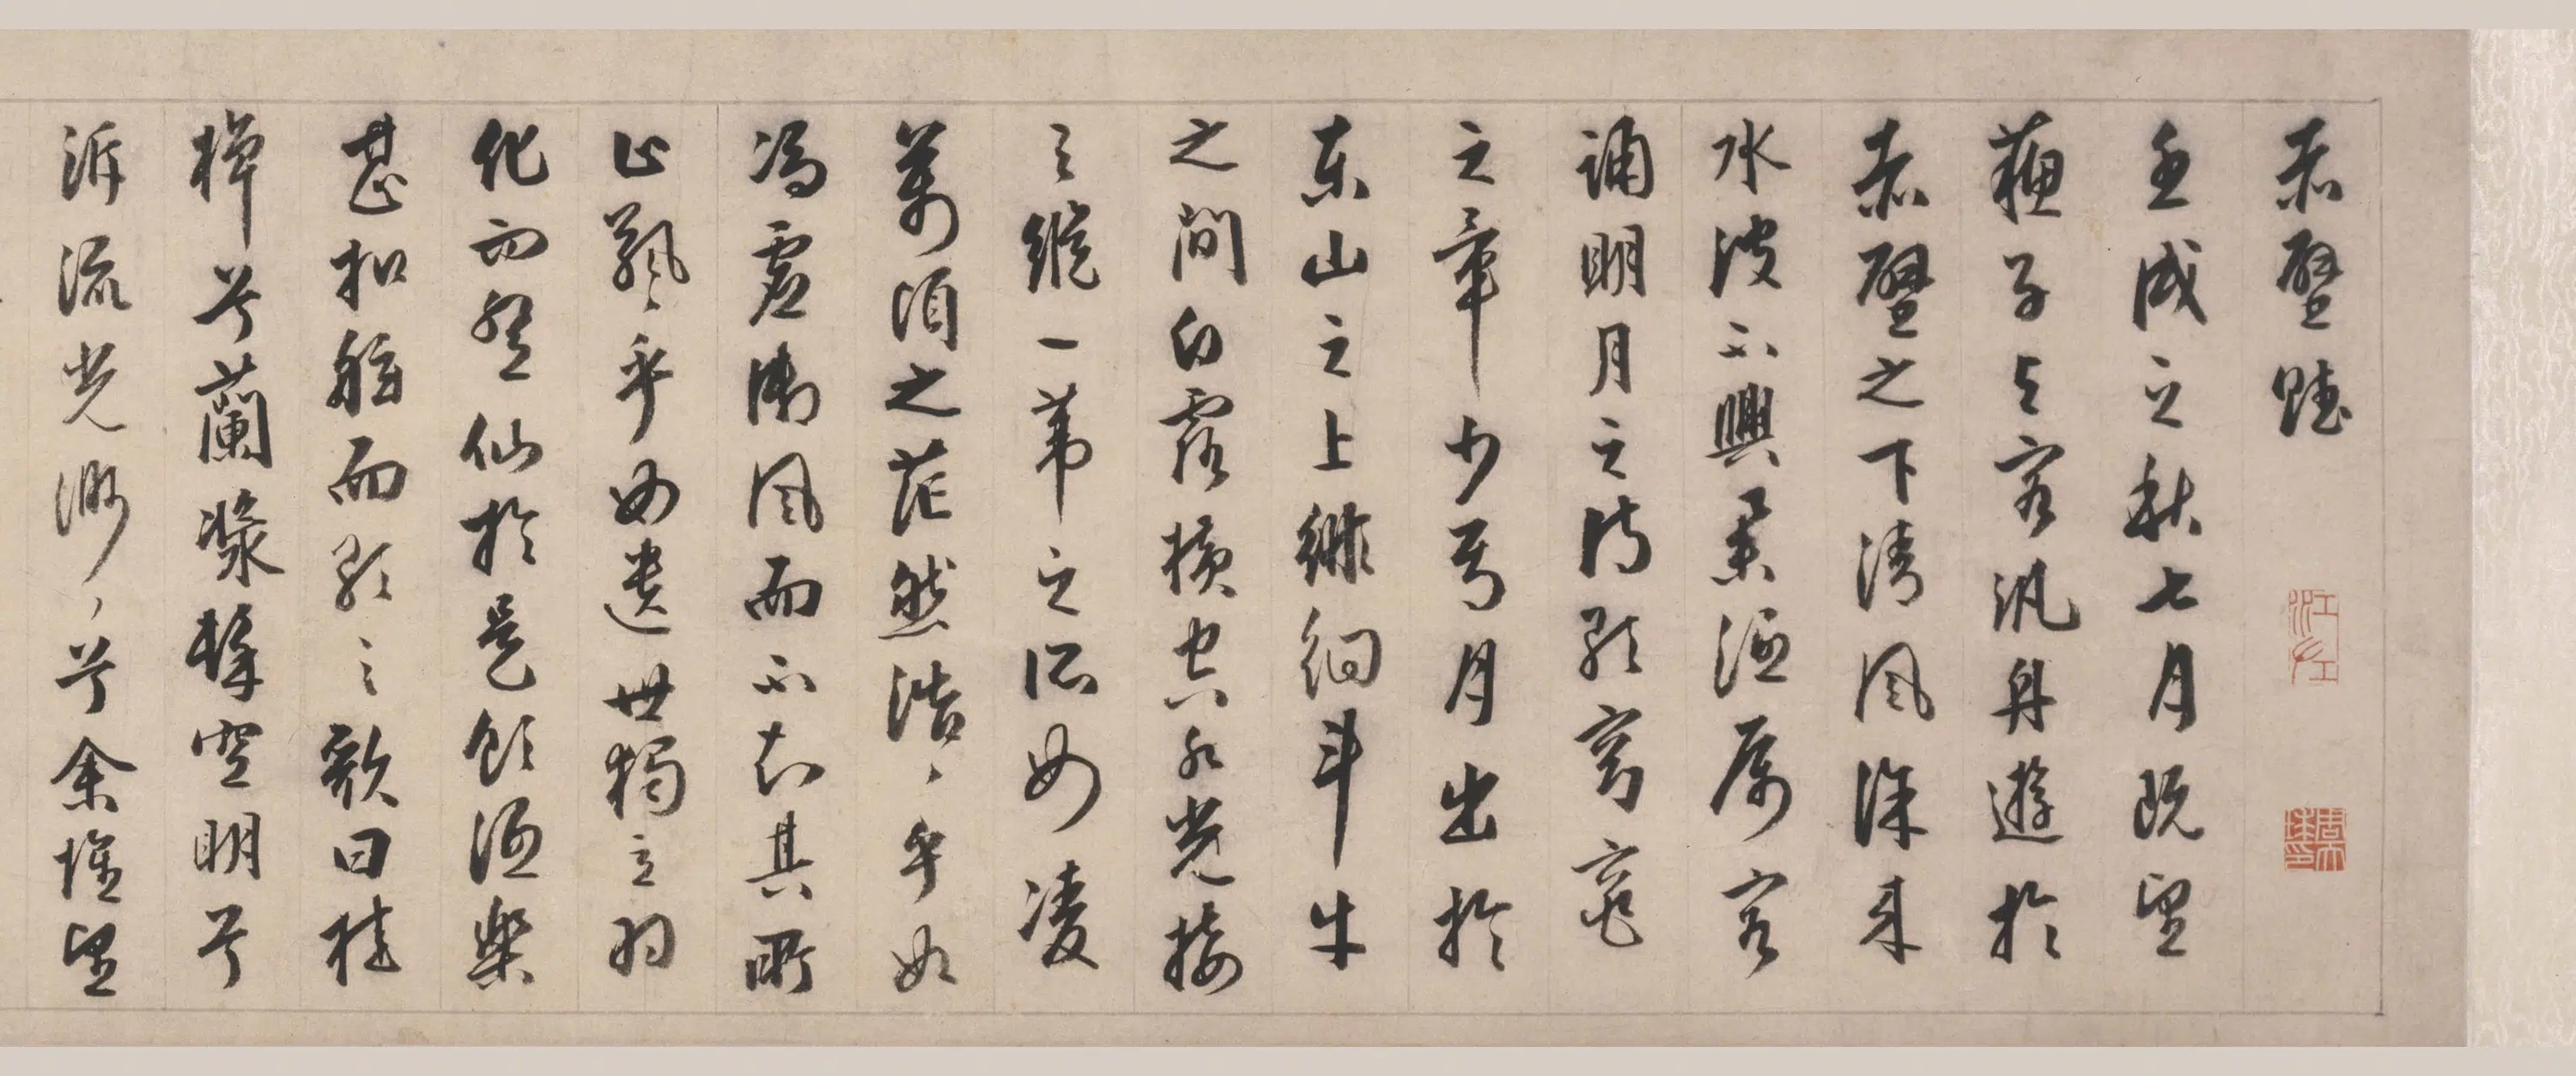 赤壁賦
江左
壬戌之秋七月既望
蘇子與客汎舟遊於
赤壁之下清風徐來
水波不興舉酒屬客
誦明月之詩歌窈窕
之章少焉月出於
東山之上徘徊斗牛
之間白露橫江水光接
天縱一葦之所如凌
萬頃之茫然浩〻乎如
馮虛御風而不知其所
止飄〻乎如遺世獨立羽
化而登仙於是飲酒樂
甚扣舷而歌之歌曰桂
棹兮蘭槳擊空明兮
泝流光渺〻兮余懷望